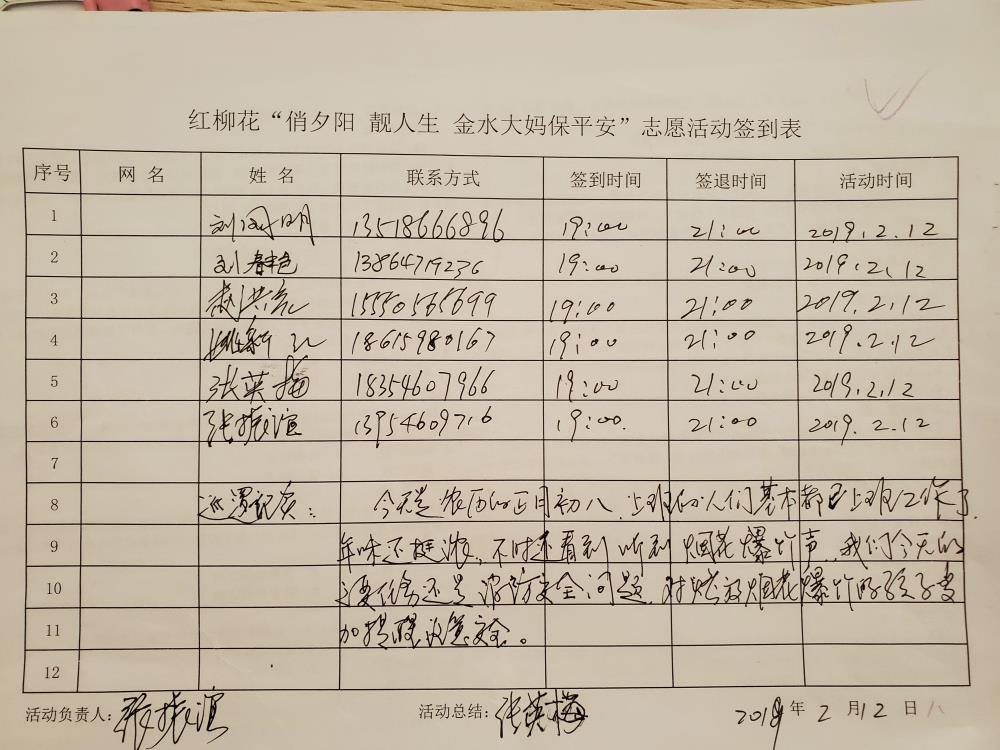 红柳花“俏夕阳 靓人生 金水大妈保平安”志愿活动签到表
序号 网 名 姓 名 联系方式 签到时间 签退时间 活动时间
1 刘 明 13518666896 19:00 21:00 2019.2.12
2 刘春色 13864719236 19:00 21:00 2019.2.12
3 赵洪亮 15550565699 19:00 21:00 2019.2.12
4 姚新 18615980167 19:00 21:00 2019.2.12
5 张英梅 18354607966 19:00 21:00 2019.2.12
6 张振谊 13954609716 19:00. 21:00 2019.2.12
7
8 巡逻记实: 今天是农历的正月初八,上班的人们基本都已上班工作了.
9 年味还挺浓,不时还看到听到烟花爆竹声,我们今天的
10 主要任务还是消防安全问题,对燃放烟花爆竹的孩子要
11 加提醒注意安全。
12
活动负责人:张振谊 活动总结:张英梅 2019年2月12日